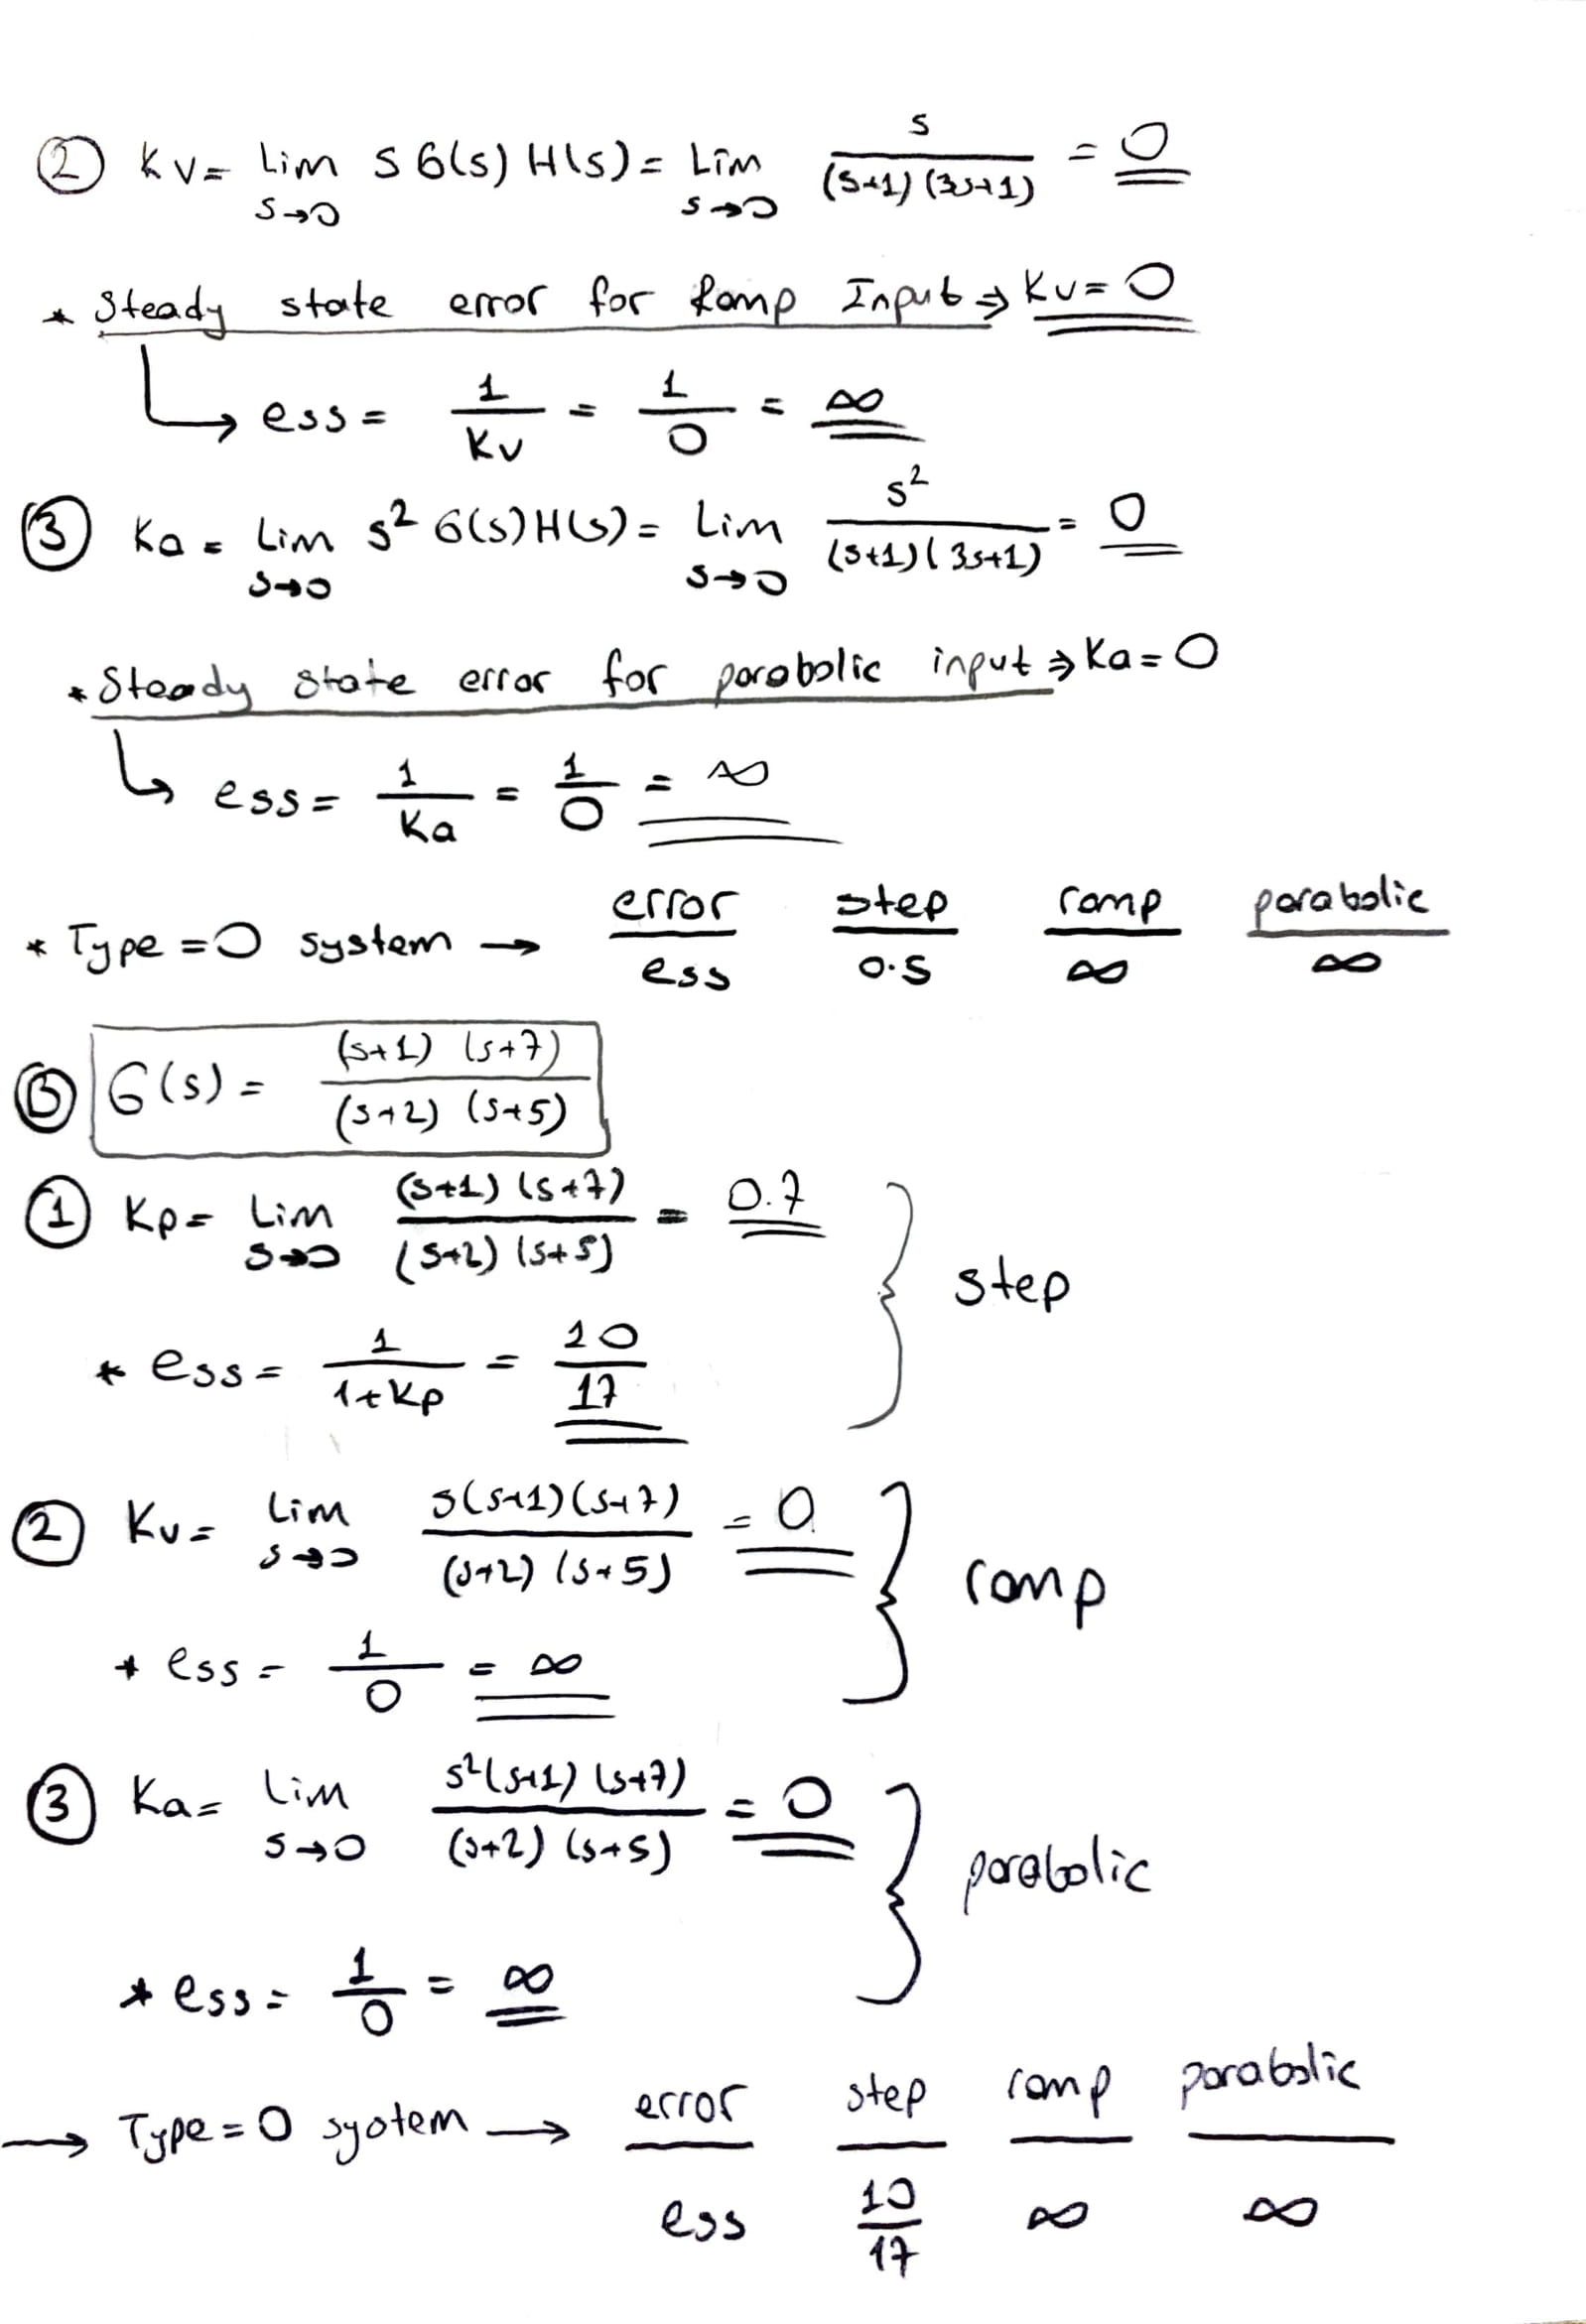 ② Kv= Lim s→0 S G(s) H(s) = Lim s→0 s/((s+1)(3s+1)) = 0
* Steady state error for Ramp Input ⇒ Kv=0
↳ ess = 1/Kv = 1/0 = ∞
③ Ka = Lim s→0 s² G(s)H(s) = Lim s→0 s²/((s+1)(3s+1)) = 0
* Steady state error for parabolic input ⇒ Ka=0
↳ ess = 1/Ka = 1/0 = ∞
* Type =0 system → error step ramp parabolic
ess 0.5 ∞ ∞
Ⓑ G(s) = ((s+1) (s+7))/((s+2) (s+5))
① Kp= Lim s→0 ((s+1) (s+7))/((s+2) (s+5)) = 0.7 } step
* ess = 1/(1+Kp) = 10/17
② Kv= Lim s→0 (s(s+1)(s+7))/((s+2) (s+5)) = 0 } ramp
* ess = 1/0 = ∞
③ Ka= Lim s→0 (s²(s+1) (s+7))/((s+2) (s+5)) = 0 } parabolic
* ess = 1/0 = ∞
→ Type=0 system → error step ramp parabolic
ess 10/17 ∞ ∞